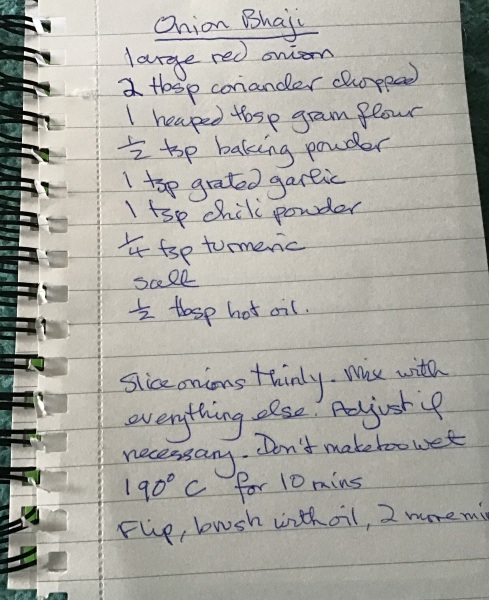 Onion Bhaji
1 large red onion
2 tbsp coriander chopped
1 heaped tbsp gram flour
½ tsp baking powder
1 tsp grated garlic
1 tsp chili powder
¼ tsp turmeric
salt
½ tbsp hot oil.
Slice onions thinly. Mix with
everything else. Adjust if
necessary. Don't make too wet
190° C for 10 mins
Flip, brush with oil, 2 more mi